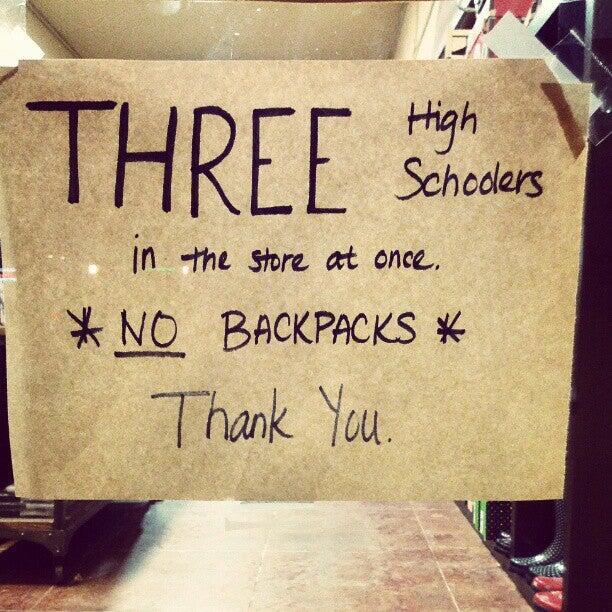 THREE High
Schoolers
in the store at once.
* NO BACKPACKS *
Thank You.